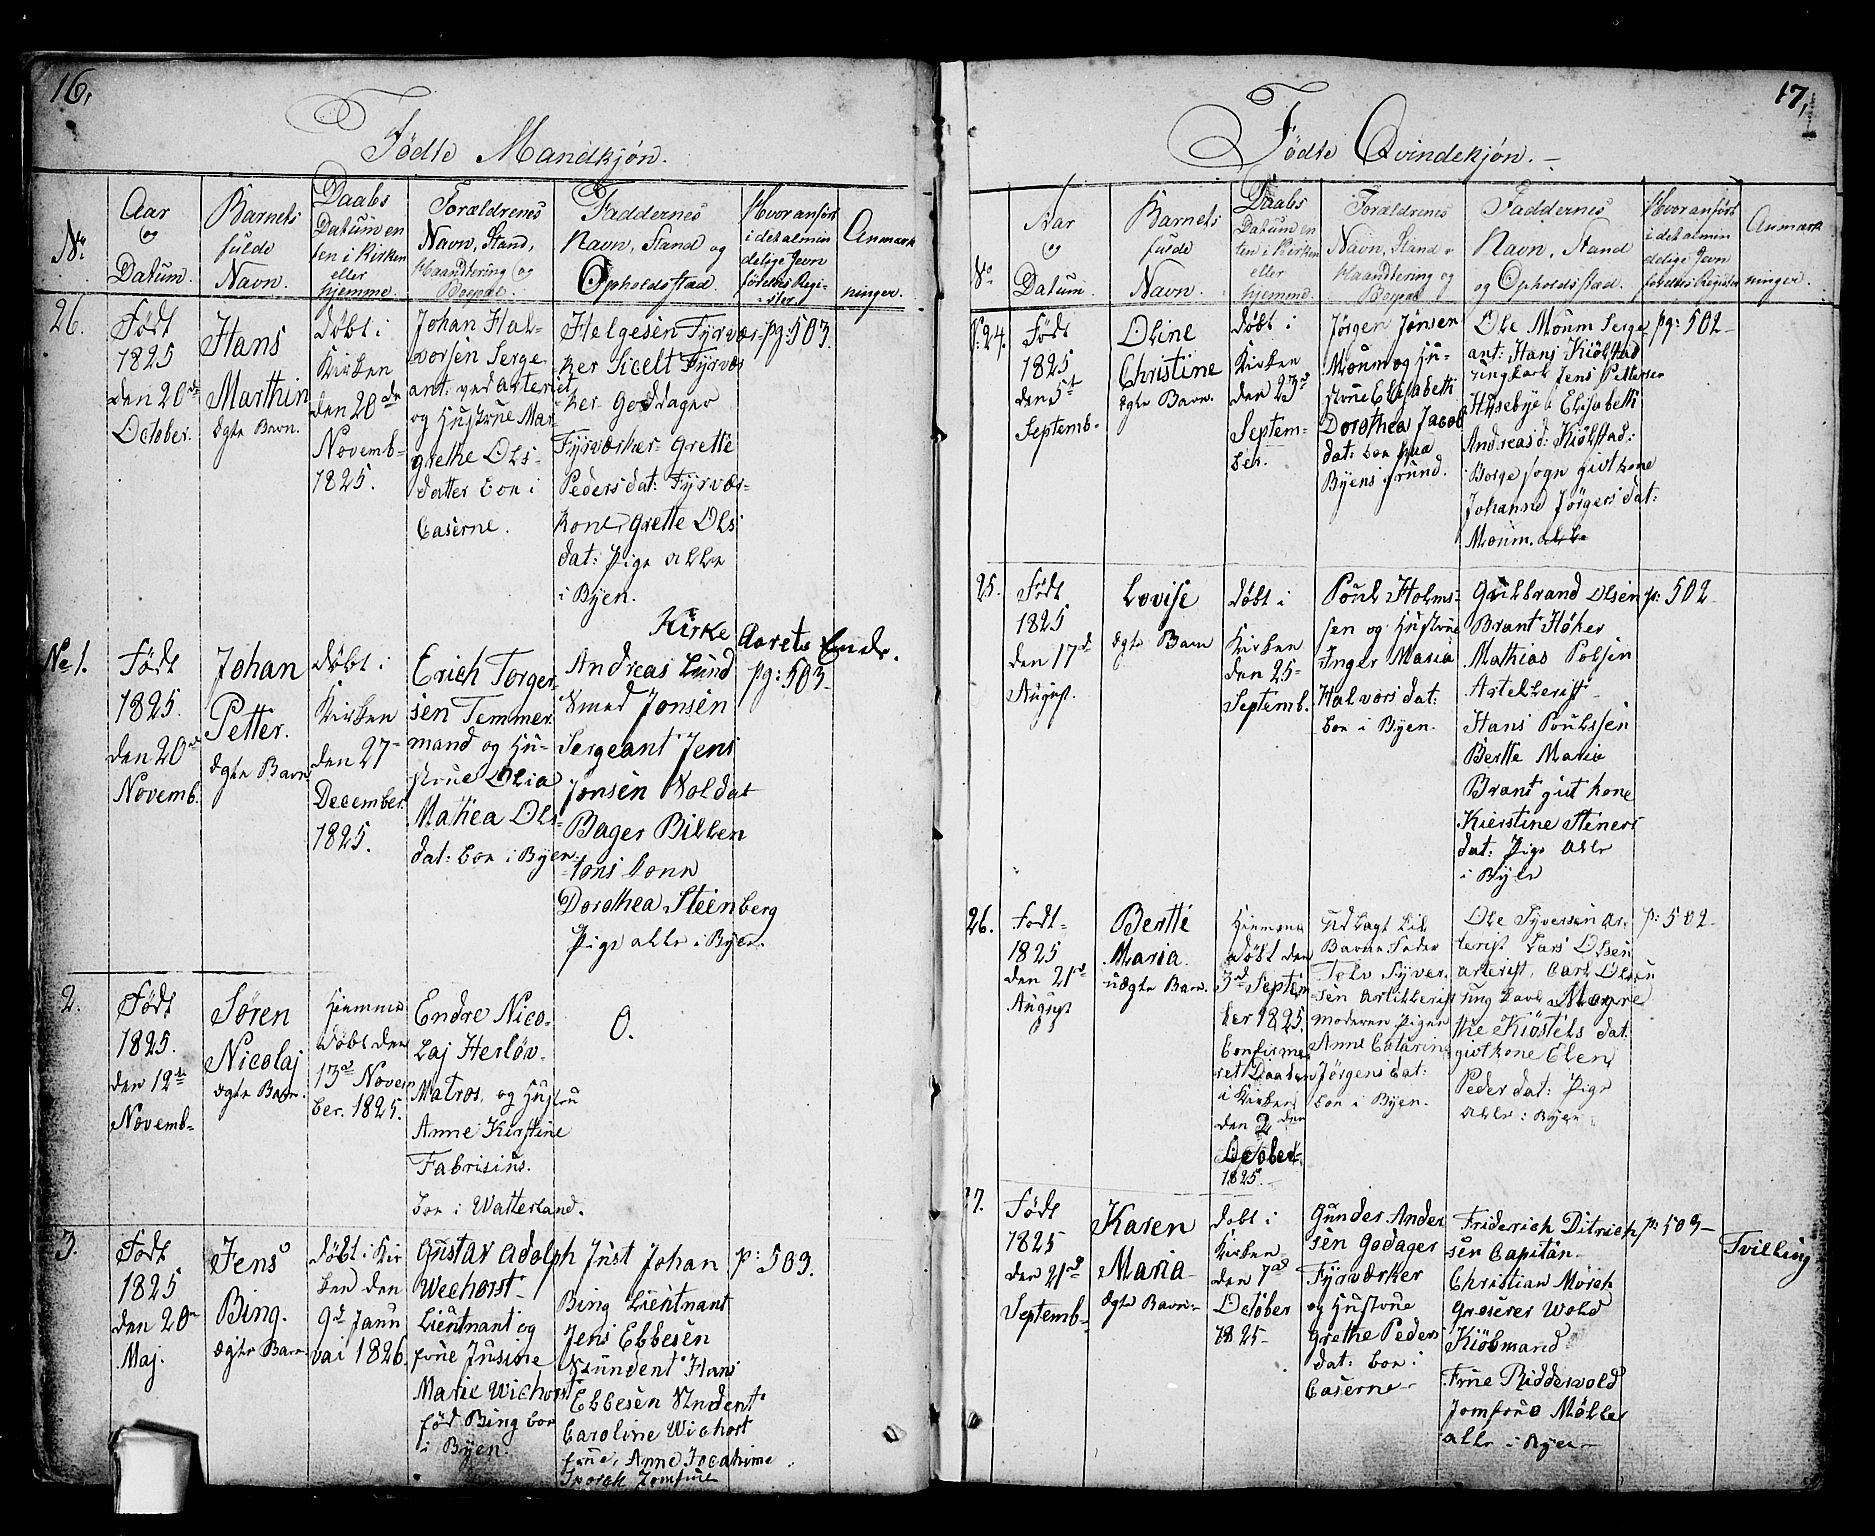 16.
Fødte Mandkjøn.
No.
Aar
og
Datum.
Barnets
fulde
Navn.
Daabs
Datum en
ten i Kirken
eller
hjemme.
Forældrenes
Navn, Stand,
Haandtering og
Bopæl.
Faddernes
Navn, Stand og
Opholdsstad.
Hvor anført
i det almin
delige Jevn
førelses Regi-
ster
Anmærk
ninger.
26.
Født
1825
den 20de
October.
Hans
Marthin
ægte Barn.
døbt i
Kirken
den 20de
Novemb-
1825.
Johan Hal-
vorsen Serge-
ant: ved arteriet
og Hustrue Mar-
grethe Ols-
datter boe i
Caserne.
Helgesen Fyrvær-
ker Sicelt Fyrvær
ker Goddager
Fyrværker Grette
Pedersdat: Fyrvær-
kone, Grette Ols
dat: Pige alle
i Byen.
pg: 503.
Kirke Aarets Ende.
No 1.
Født
1825.
den 20de
Novemb.
Johan
Petter.
ægte Barn
døbt i
Kirken
den 27-
December
1825.
Erich Torger-
sen Temmer
mand og Hu-
strue Olia
Mathea Ols-
dat: boe i Byen.
Andreas Lund
Smed Jonsen
Sergeant Jens
Jonsen Soldat
Bager Billen
-tons Kone
Dorothea Steenberg
Pige alle i Byen.
pg: 503-
2.
Født
1825.
den 12te
Novemb-
Søren
Nicolaj
ægte Barn.
Hiemme
døbt den
13de Novem
ber. 1825.
Endre Nico-
laj Herløv-
Matros, og Hustru
Anne Kirstine
Fabrisius.
boe i Watterland.
0.
3.
Født
1825
den 20de
Maj.
Jens
Bing.
ægte Barn
døbt i Kir
ken den
9de Janu
vai 1826.
Gustav Adolph
Wechorst-
Lieutnant og
frue Jusine
Marie Wichorst
fød Bing boe
i Byen.
Just Johan
Bing Lieutnant
Jens Ebbesen
Stundent Hans
Ebbesen Student
Caroline Wichorst
frue, Anne Joachime
Jomfrue
p: 503.
17.
Fødte Qvindekjøn.-
No
Aar
og
Datum.
Barnets
fulde
Navn.
Daabs
Datum en
ten i Kirken
eller
hjemme
Forældrenes
Navn, Stand
Haandtering og
Bopæl
Faddernes
Navn, Stand
og Opholdsstad.
Hvor anført
i det almin
delige Jevn
førelses Register
Anmærk
ninger.
N: 24.
Født
1825
den 5t
Septemb-
Oline
Christine
ægte Barn.
døbt i
Kirken
den 23de
Septem-
ber.
Jørgen Jønsen
Moum og Hu-
strue Elisabeth
Dorothea Jacob
dat: boe paa
Byens Grund.
Ole Moum Serge
ant: Hans Kiølstad
ungkarl Jens Pettersen
Husebye Elisabeth
Andreasd: Kiølstad:
i Borge sogn givt kone
Johanne Jørgersdat:
Moum.
pg: 502-
25.
Født
1825
den 17de
August.
Lovise
ægte Barn
døbt i
Kirken
den 25-
Septemb.
Poul Holms-
sen og Hustrue
Inger Maria
Halvorsdat:
boe i Byen.
Gulbrand Olsen
Brant Høker
Mathias Polsen
Artellerist-
Hans Poulssen
Bertte Marie
Brant givt kone
Kierstine Steners
dat: Pige Alle
i Byen
p: 502-
26.
Født-
1825
den 21de
August
Bertte
Maria.
uægte Barn.
Hiemme
døbt den
3de Septem
ber 1825.
Confirme
ret Daaben
i Kirken
den 2den
October
1825.
Udlagt til
Barne Fader
Tolv Syver-
sen Artillerist
Moderen Pigen
Anne Catarine
Jørgensdat:
boe i Byen.
Ole Syversen Ar-
terist Lars Olsen
arterist, Carl Olsen
ung karl Magre
the Kiøstels dat:
givt kone Elen
Pedersdat: Pige
alle i Byen
p: 502-
27.
Født
1825
den 21de
Septemb-
Karen
Maria
ægte Barn-
døbt i
Kirken
den 7de
October
1825-
Gunder Ander
sen Godager
Fyrværker
og Hustrue
Grethe Peders
dat: boe i
Caserne-
Friderich Ditrich
sen Capitán-
Christian Mørch
Wold
Kiøbmand
Frue Ridderwold
Jomfrue Møller
alle i Byen-
p: 503-
Tvilling